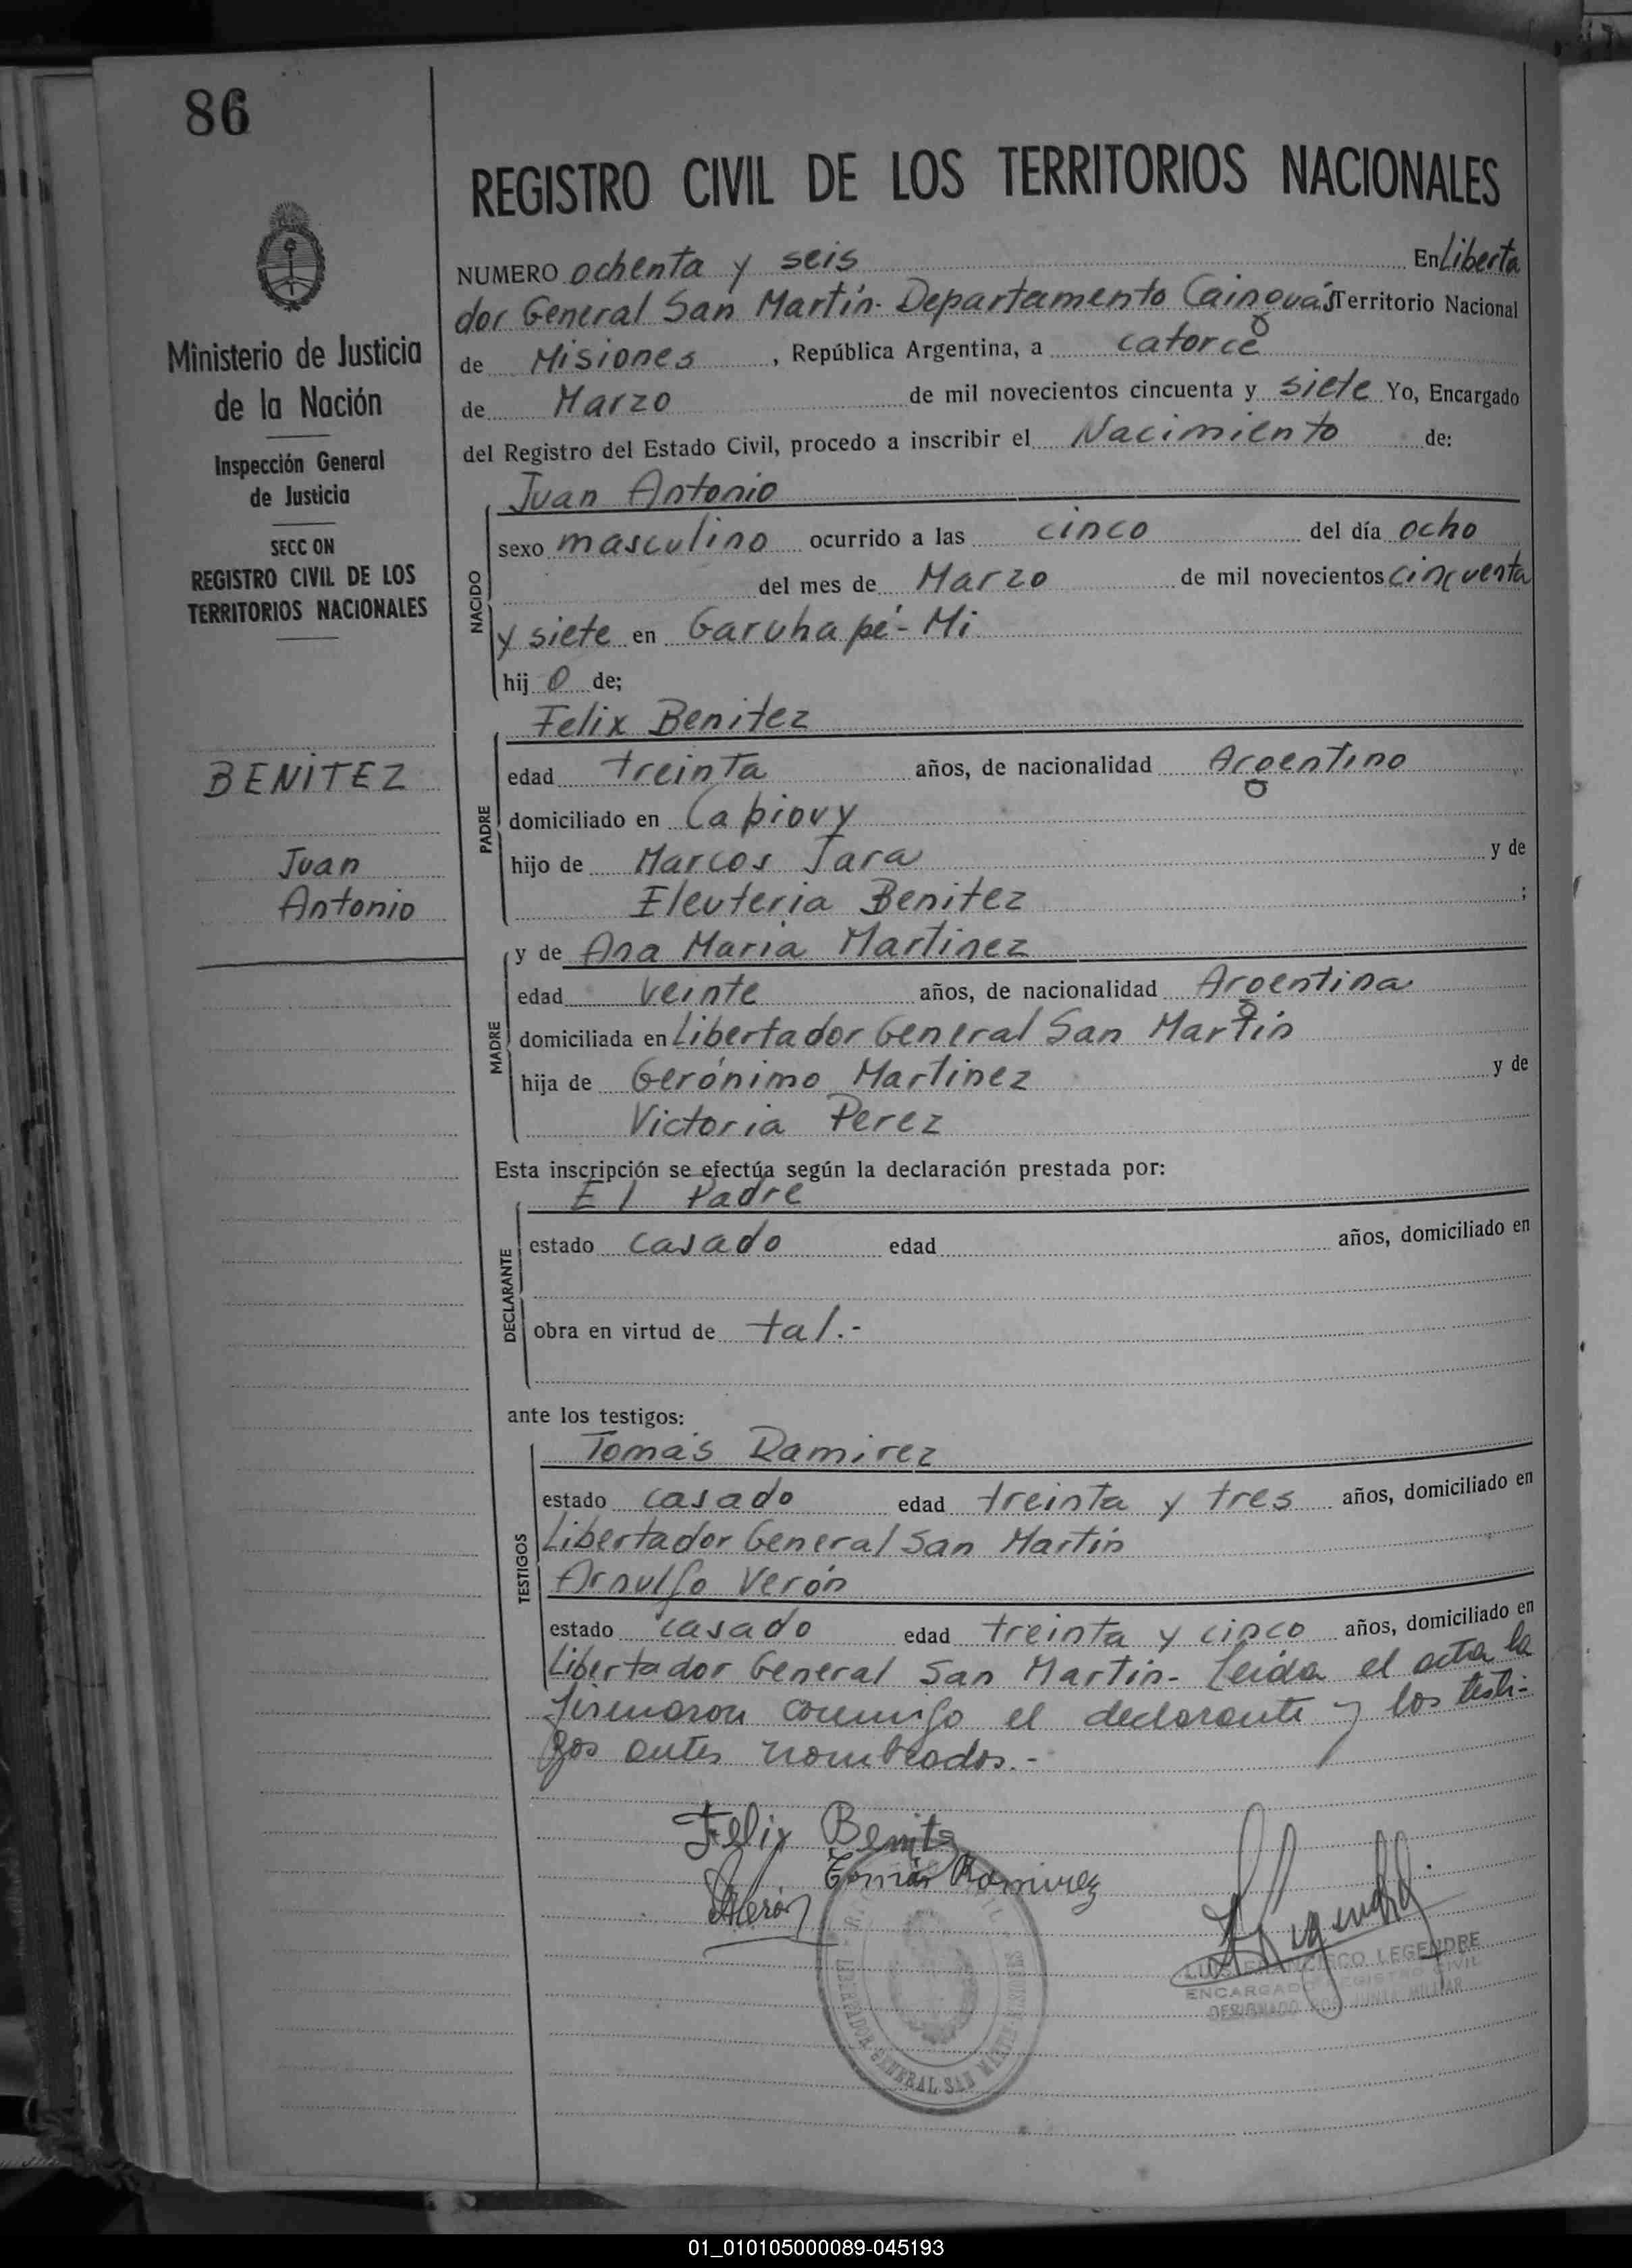 86
REGISTRO CIVIL DE LOS TERRITORIOS NACIONALES
Ministerio de Justicia
de la Nación
Inspección General
de Justicia
SECC ON
REGISTRO CIVIL DE LOS
TERRITORIOS NACIONALES
BENITEZ
Juan
Antonio
NUMERO ochenta y seis En Liberta
dor General San Martín - Departamento Cainguás Territorio Nacional
de Misiones, República Argentina, a catorce
de Marzo de mil novecientos cincuenta y siete Yo, Encargado
del Registro del Estado Civil, procedo a inscribir el Nacimiento de:
NACIDO
Juan Antonio
sexo masculino ocurrido a las cinco del día ocho
del mes de Marzo de mil novecientos cincuenta
y siete en Garuhapé - Mi
hij o de;
PADRE
Felix Benitez
edad treinta años, de nacionalidad Argentino
domiciliado en Capiovy
hijo de Marcos Jara y de
Eleuteria Benitez ;
MADRE
y de Ana Maria Martinez
edad veinte años, de nacionalidad Argentina
domiciliada en Libertador General San Martin
hija de Gerónimo Martinez y de
Victoria Perez
Esta inscripción se efectúa según la declaración prestada por:
DECLARANTE
El Padre
estado casado edad años, domiciliado en
obra en virtud de tal.-
ante los testigos:
TESTIGOS
Tomás Ramirez
estado casado edad treinta y tres años, domiciliado en
Libertador General San Martin
Arnulfo Verón
estado casado edad treinta y cinco años, domiciliado en
Libertador General San Martin - Leida el acta la
firmaron conmigo el declarante y los testi-
gos antes nombrados.-
Felix Benitz
Tomás Ramirez
Verón
LUIS FRANCISCO LEGENDRE
ENCARGADO REGISTRO CIVIL
DESIGNADO POR JUNTA MILITAR
LIBERTADOR GENERAL SAN MARTIN
01_010105000089-045193